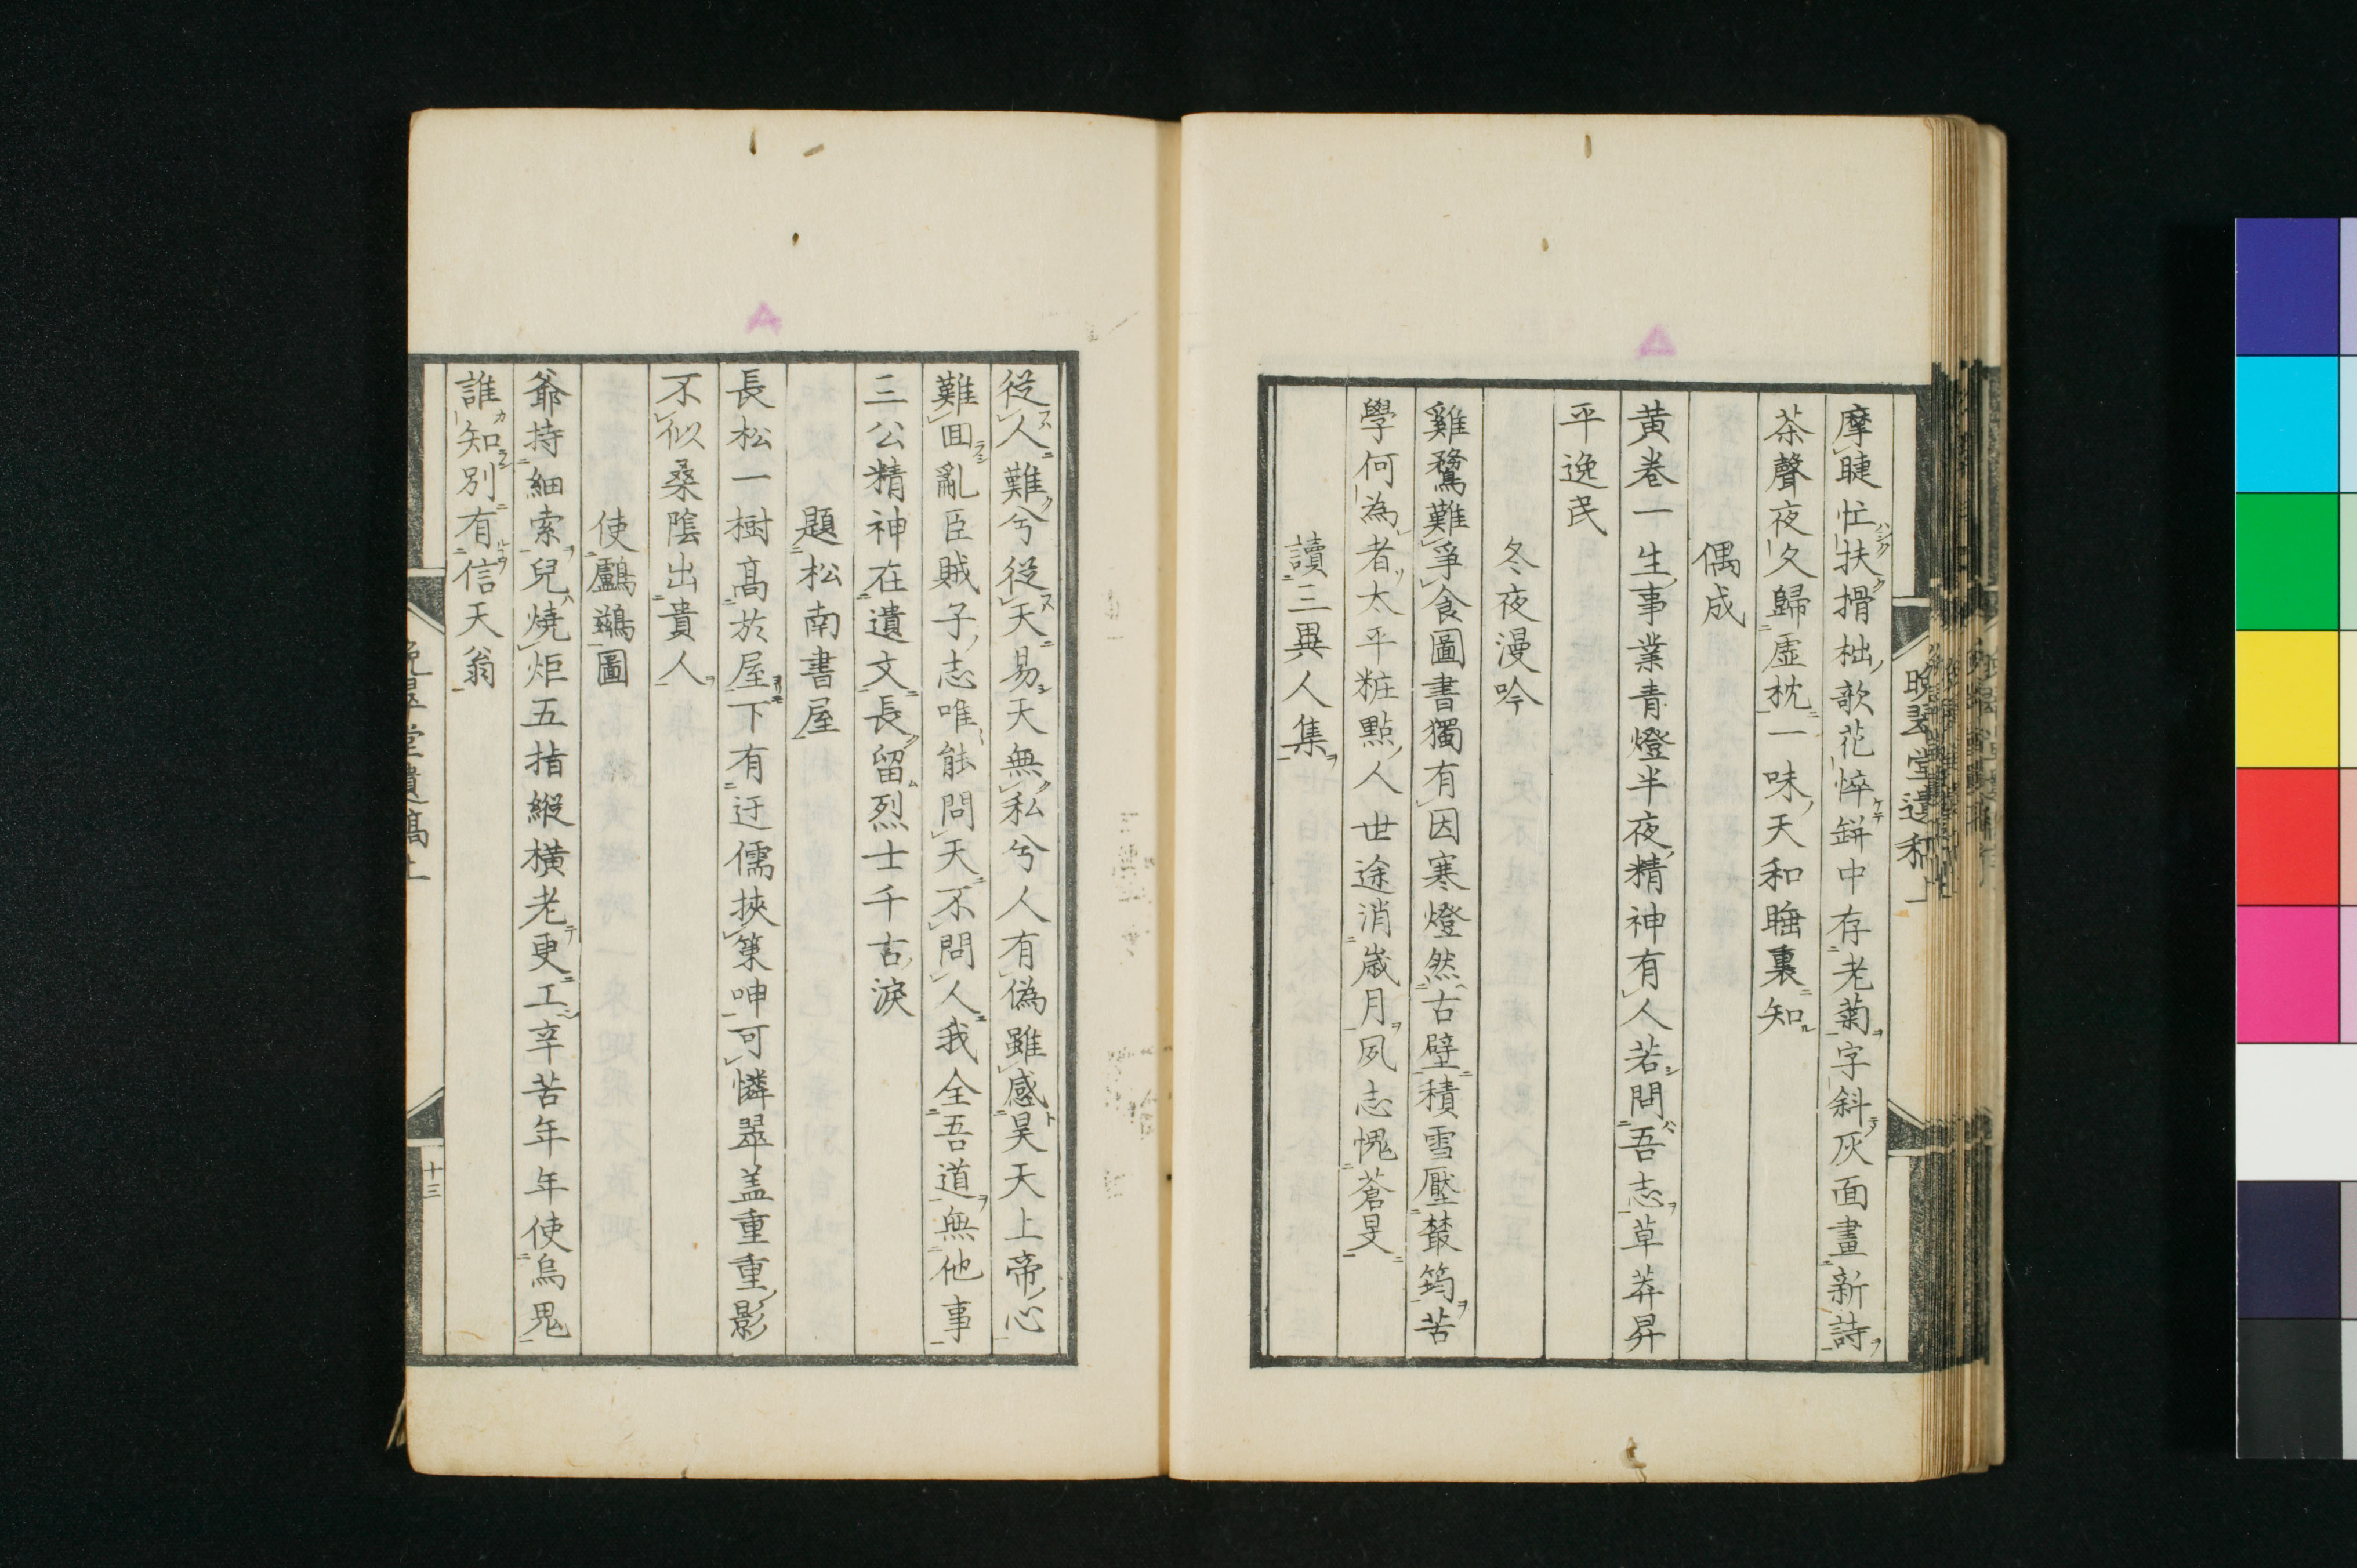 摩睫忙扶搰柮歌花悴缾中存老菊字斜灰面畫新詩
茶聲夜久歸虛枕一味天和睡裏知
偶成
黃卷一生事業青燈半夜精神有人若問吾志草莽昇
平逸民
冬夜漫吟
雞鶩難爭食圖書獨有因寒燈然古壁積雪壓叢筠苦
學何為者太平粧點人世途消歲月夙志愧蒼旻
讀三異人集
從人難兮從天易天無私兮人有偽雖感昊天上帝心
難回亂臣賊子志唯能問天不問人我全吾道無他事
三公精神在遺文長留烈士千古淚
題松南書屋
長松一樹高於屋下有迂儒挾策呻可憐翠盖重重影
不似桑陰出貴人
使鸕鷀圖
爺持細索兒燒炬五指縱橫老更工辛苦年年使烏鬼
誰知別有信天翁
晚翠堂遺稿上
十三